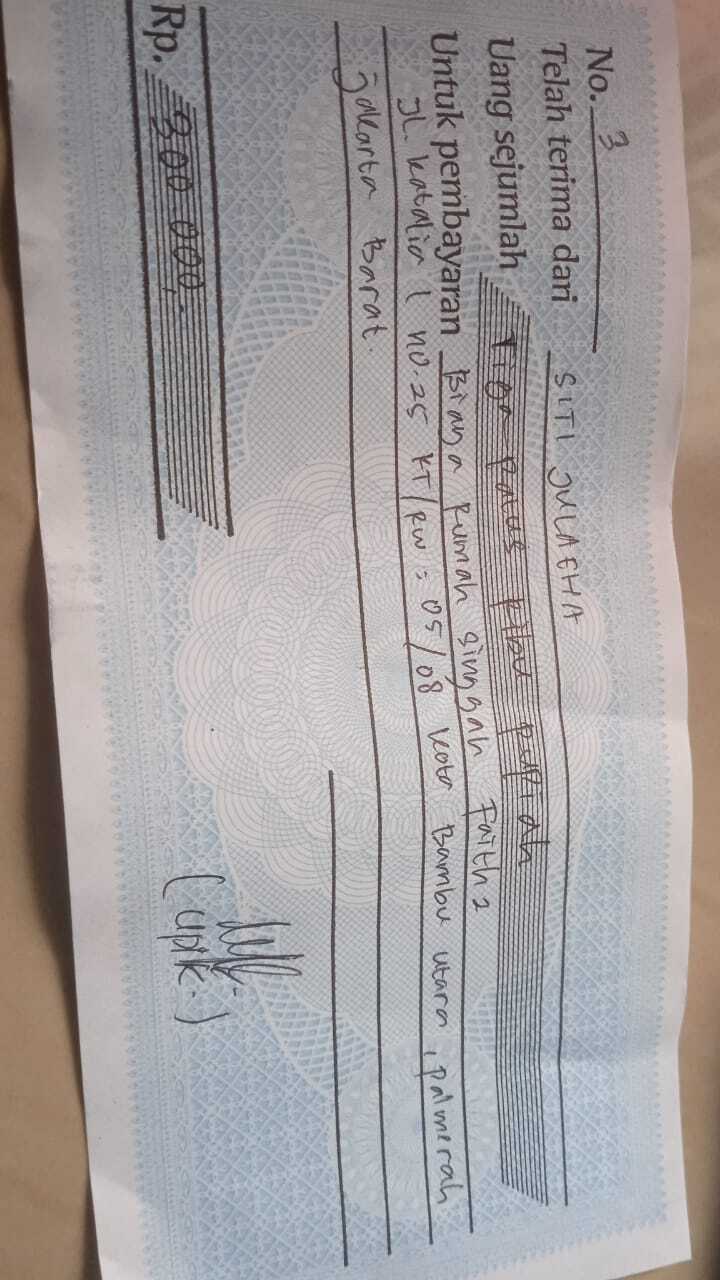 No. 3
Telah terima dari SITI JULAEHA
Uang sejumlah Tiga ratus ribu rupiah
Untuk pembayaran Biaya Rumah singgah Faith 2
Jl. Katalia 1 no. 25 RT/RW : 05/08 kota Bambu utara, palmerah
Jakarta Barat.
Rp. 300 000,-
(upik.)